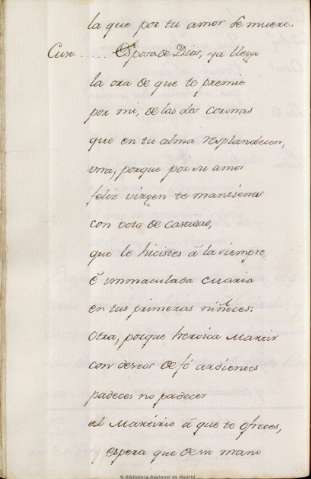 la que por tu amor se muere.
Cux ..... Esposa de Dios, ya llega
la ora de que te premie
por mi, de las dos coronas
que en tu alma resplandecen,
una, porque por su amor
feliz virgen te mantienes
con voto de
que le hicistes á la siempre
é immaculada Maria
en tus primeras niñeces.
Otra, porque heroica Martir
con deseos de fé ardientes
padeces no padecer
el Martirio á que te ofreces,
y espera que de mi mano
Biblioteca Nacional de España